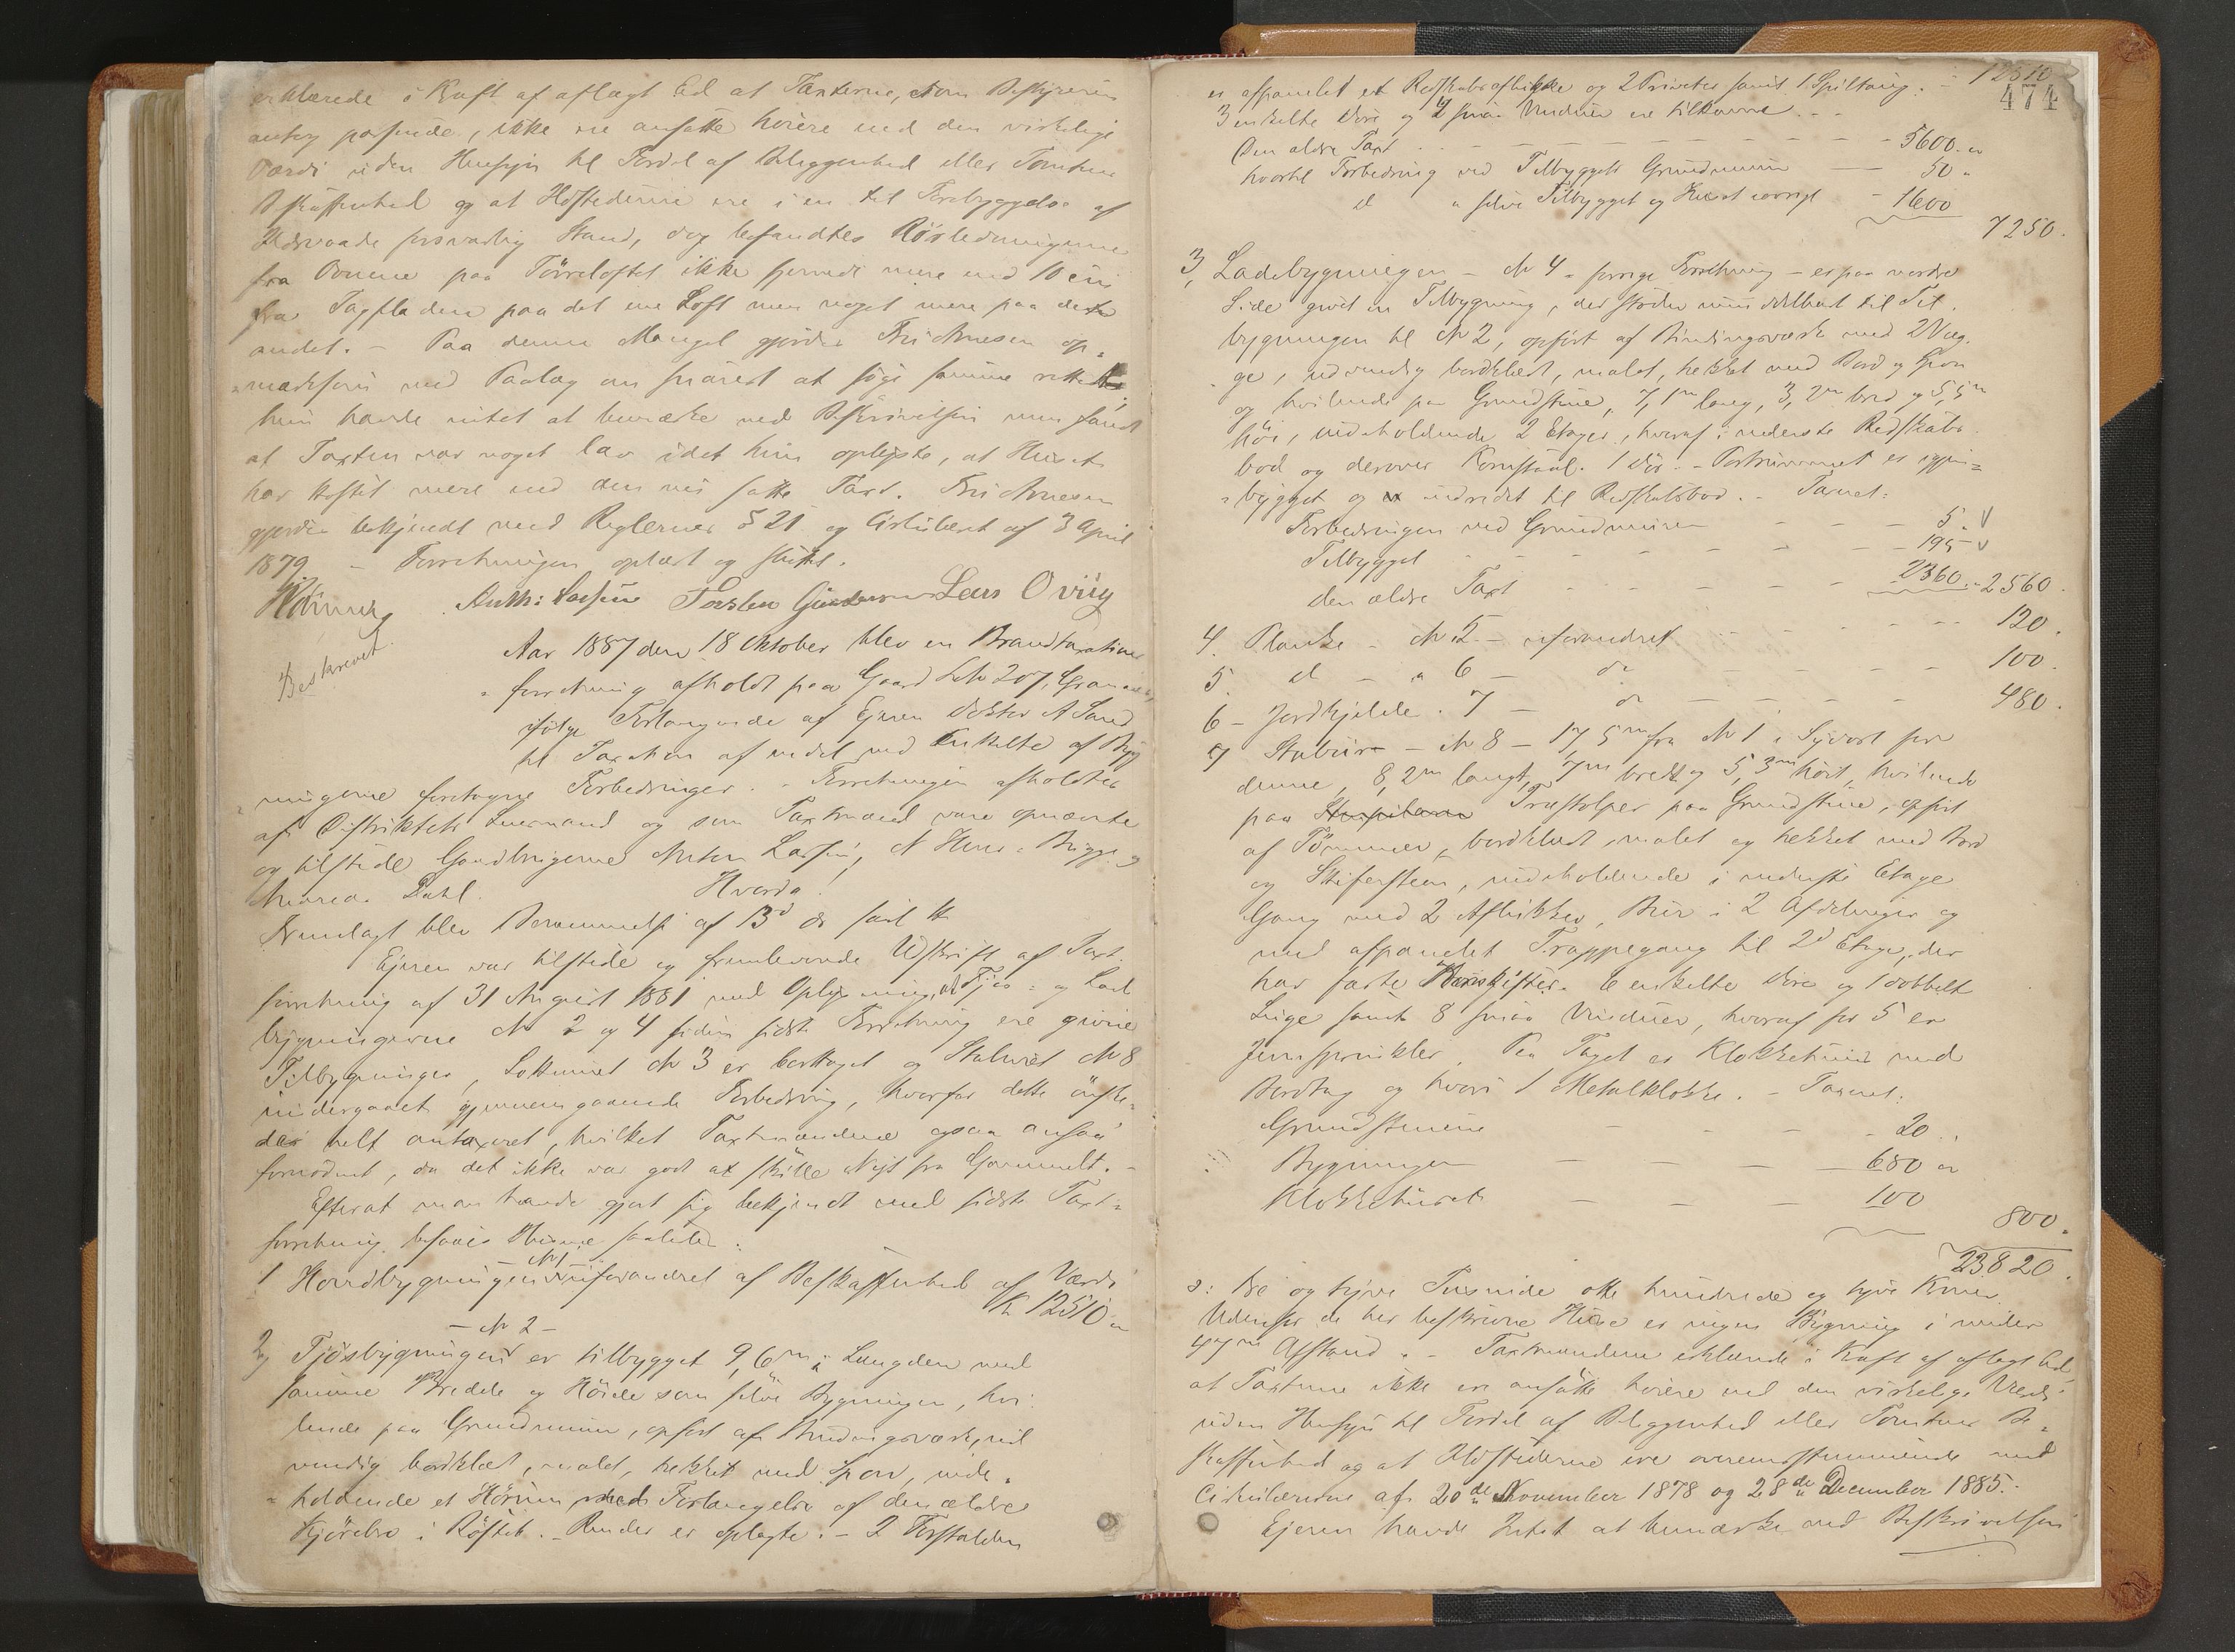 erklærede i Kraft af aflagt Ed at Taxterne, som Bestyreren
antog passende, ikke ere ansatte høiere end den virkelige
Værdi uden Hensyn til Fordel af Beliggenhed eller Tomtens
Beskaffenhed og at Ildstederne ere i en til Forebyggelse af
Ildsvaade forsvarlig Stand, dog befandtes Rørledningerne
fra Ovnene paa Tørreloftet ikke fjernede mere end 10 cm
fra Tagfladen paa det ene Loft men noget mere paa det
andet. – Paa denne Mangel gjordes Fru Arnesen op-
mærksom med Paalæg om snarest at søge samme rettet
hun havde intet at bemærke ved Beskrivelsen men fandt
at Taxten var noget lav idet hun oplyste, at Huset
har kostet mere end den nu satte Taxt. Fru Arnesen
gjordes bekjendt med Reglernes § 21 og Cirkulæret af 3 April
1879. – Forretningen oplæst og sluttet.
Anth: Larsen Torsten Gundersen Lars Oving
Beskrevet.
Aar 1887 den 18 Oktober blev en Brandtaxations
forretning afholdt paa Gaard L No 207,
ifølge Forlangende af Ejeren Doktor A Sand
til Taxation af endel ved Enkelte af Byg
ningerne foretagne Forbedringer. – Forretningen afholdtes
af Distriktets Lensmand og som Taxtmænd vare opnævnte
og tilstede Gaardbrugerne Anton Larsen, N Hans. Brygge og
Andreas Dahl. Hvorda:
Fremlagt blev Berammelse af 13d ds saal tt
Ejeren var tilstede og fremlevede Udskrift af Taxt
forretning af 31 August 1881 med Oplysning, at Fjøs- og Lade
bygningerne No 2 og 4 siden sidste Forretning ere givne
Tilbygninger, No 3 er borttaget og Stabburet No 8
undergaaet gjennemgaaende Forbedring, hvorfor dette ønske-
des helt omtaxeret, hvilket Taxtmændene ogsaa ansaa
fornødent, da det ikke var godt at skille Nyt fra Gammelt. –
Efterat man havde gjort sig bekjendt med sidste Taxt-
forretning befandtes Husene saaledes:
1 Hovedbygningen No 1 uforandret af Beskaffenhed og Værdi
Kr 12510 „
– No 2 –
2) Fjøsbygningen er tilbygget 9,6m i Længden med
samme Bredde og Høide som selve Bygningen, hvi-
lende paa Grundmur, opført af Bindingsværk, ud
vendig bordklædt, malet, tækket med Spon, inde-
holdende et Hørum med Forlængelse af den ældre
Kjørebro i Røstet. – Render er oplagte. – 2 Forstalder
12510
474
er afpanelet et Redskabsaflukke og 2 Privéter samt 1 Spiltaug. –
3 enkelte Døre og 4 smaa Vinduer ere tilkomne. –
Den ældre Taxt – – – 5600. „
hvortil Forbedring ved Tilbyggets Grundmur – 50 „
d „ selve Tilbygget og Huset iøvrigt – 1600
7250.
3, Ladebygningen – No 4 – forrige Forretning – er paa nordre
Side givet en Tilbygning, der støder umiddelbart til Til
bygningen til No 2, opført af Bindingsværk med 2 Væg-
ge, udvendig bordklædt, malet, tækket med Bord og Spon
og hvilende paa Grundstene, 7,1m lang, 3,2m bred og 5,5m
høi, indeholdende 2 Etager, hvoraf i nederste Redskabs
bod og derover Kornstaal. 1 Dør. – Portrummet er igjen-
bygget og indredet til Redskabsbod. – Taxeret:
Forbedringen ved Grundmuren – – – 5 „
Tilbygget – – – 195
den ældre Taxt – – – 2360 „ 2560.
4. Planke – No 5 – uforandret – – – 120.
5. d – „ 6 – do – – – 100.
6 – Jordkjelder . 7 – do – – – 480.
7 Stabur – No 8 – 17,5m fra No 1 i Sydost for
denne, 8,2m langt, 7m bredt og 5,3m høit, hvilende
paa Træstolper paa Grundstene, opført
af Tømmer, bordklædt, malet og tækket med Bord
og Skifersten, indeholdende i nederste Etage
Gang med 2 Aflukker, Bur i 2 Afdelinger og
med afpanelet Trappegang til 2d Etage, der
har faste Kornkister. 6 enkelte Døre og 1 dobbelt
Luge samt 8 smaa Vinduer, hvoraf for 5 er
Jernsprinkler. Paa Taget er Klokketaarn med
Bordtag og hvori 1 Metalklokke. – Taxeret:
Grundstenene – – – 20 „
Bygningen – – – 680 „
Klokketaarnet – – – 100
800.
23820.
ɔ: tre og tyve Tusinde otte hundrede og tyve Kroner.
Udenfor de her beskrevne Huse er ingen Bygning i mindre
Afstand. – Taxtmændene erklærede i Kraft af aflagt Ed
at Taxterne ikke ere ansatte høiere end den virkelige Værdi
uden Hensyn til Fordel af Beliggenhed eller Tomtens Be-
skaffenhed og at Ildstederne ere overensstemmende med
Cirkulærerne af 20de November 1878 og 28de December 1885. –
Ejeren havde Intet at bemærke ved Beskrivelsen